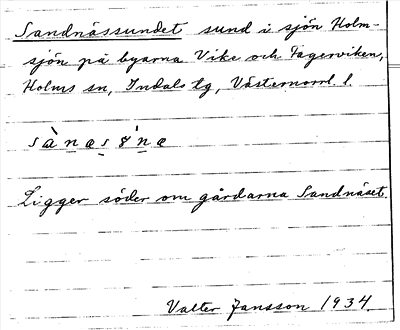 Sandnässundet sund i sjön Holm-
sjön på byarna Vike och Fagerviken,
Holms sn, Indals tg, Västernorrl. l.
Ligger söder om gårdarna Sandnäset.
Valter Jansson 1934.